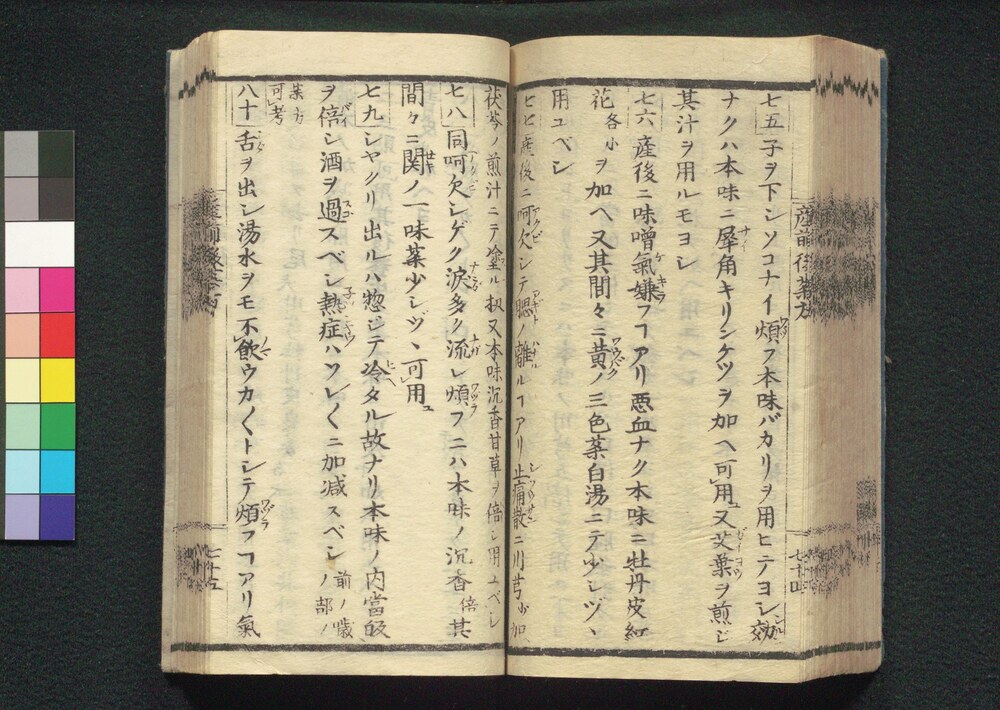 産前後薬方
七十四
七五 子ヲ下シソコナイ煩フ本味バカリヲ用ヒテヨシ効
ナクハ本味ニ犀角キリンケツヲ加ヘ可用又艾葉ヲ煎じ
其汁ヲ用ルモヨシ
七六 産後ニ味噌氣嫌フヿアリ悪血ナク本味ニ牡丹皮紅
花各小ヲ加ヘ又其間々ニ黄ノ三色薬白湯ニテ少シヅヽ
用ユベシ
七七 産後ニ呵欠シテ腮ノ離ルヿアリ止痛散ニ川芎少加
茯苓ノ煎汁ニテ塗ル扨又本味沉香甘草ヲ倍シ用ユベシ
七八 同呵欠シゲク涙多ク流レ煩フニハ本味ノ沉香倍其
間々ニ関ノ一味薬少シヅヽ可用
七九 シヤクリ出ルハ惣シテ冷タル故ナリ本味ノ内當皈
ヲ倍シ酒ヲ過スベシ熱症ハソレ〱ニ加減スベシ前ノ部ノ
薬方可考
八十 舌ヲ出シ湯水ヲモ不飲ウカ〱トシテ煩フヿアリ氣
七十五